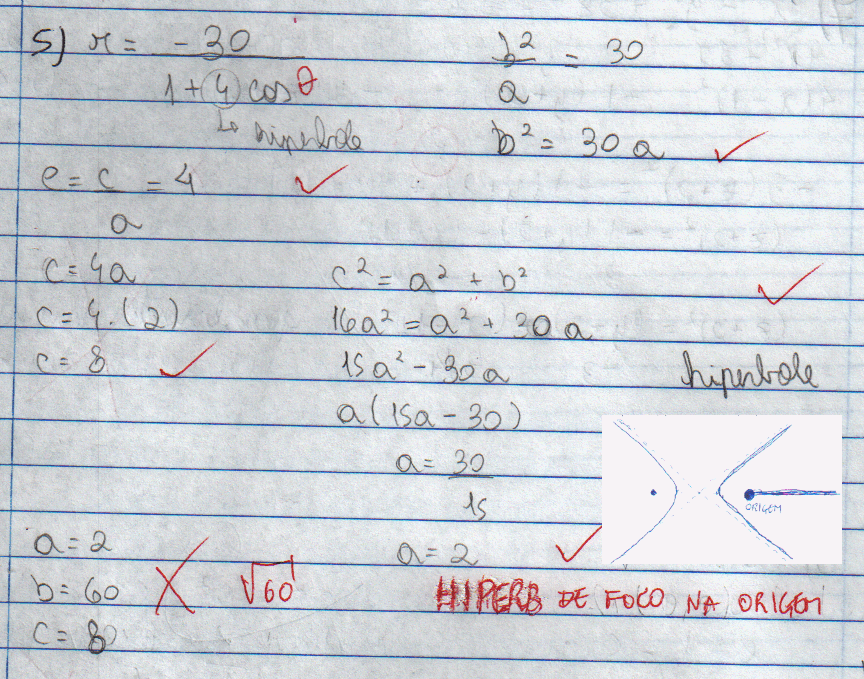 5) r = -30 / 1 + 4 cos θ
↳ hiperbole
b² / a = 30
b² = 30 a ✓
e = c / a = 4 ✓
c = 4a
c = 4.(2)
c = 8 ✓
c² = a² + b² ✓
16a² = a² + 30 a
15a² - 30 a
a(15a - 30)
a = 30 / 15
a = 2 ✓
hiperbole
ORIGEM
a = 2
b = 60 X √60
c = 8
HIPERB DE FOCO NA ORIGEM